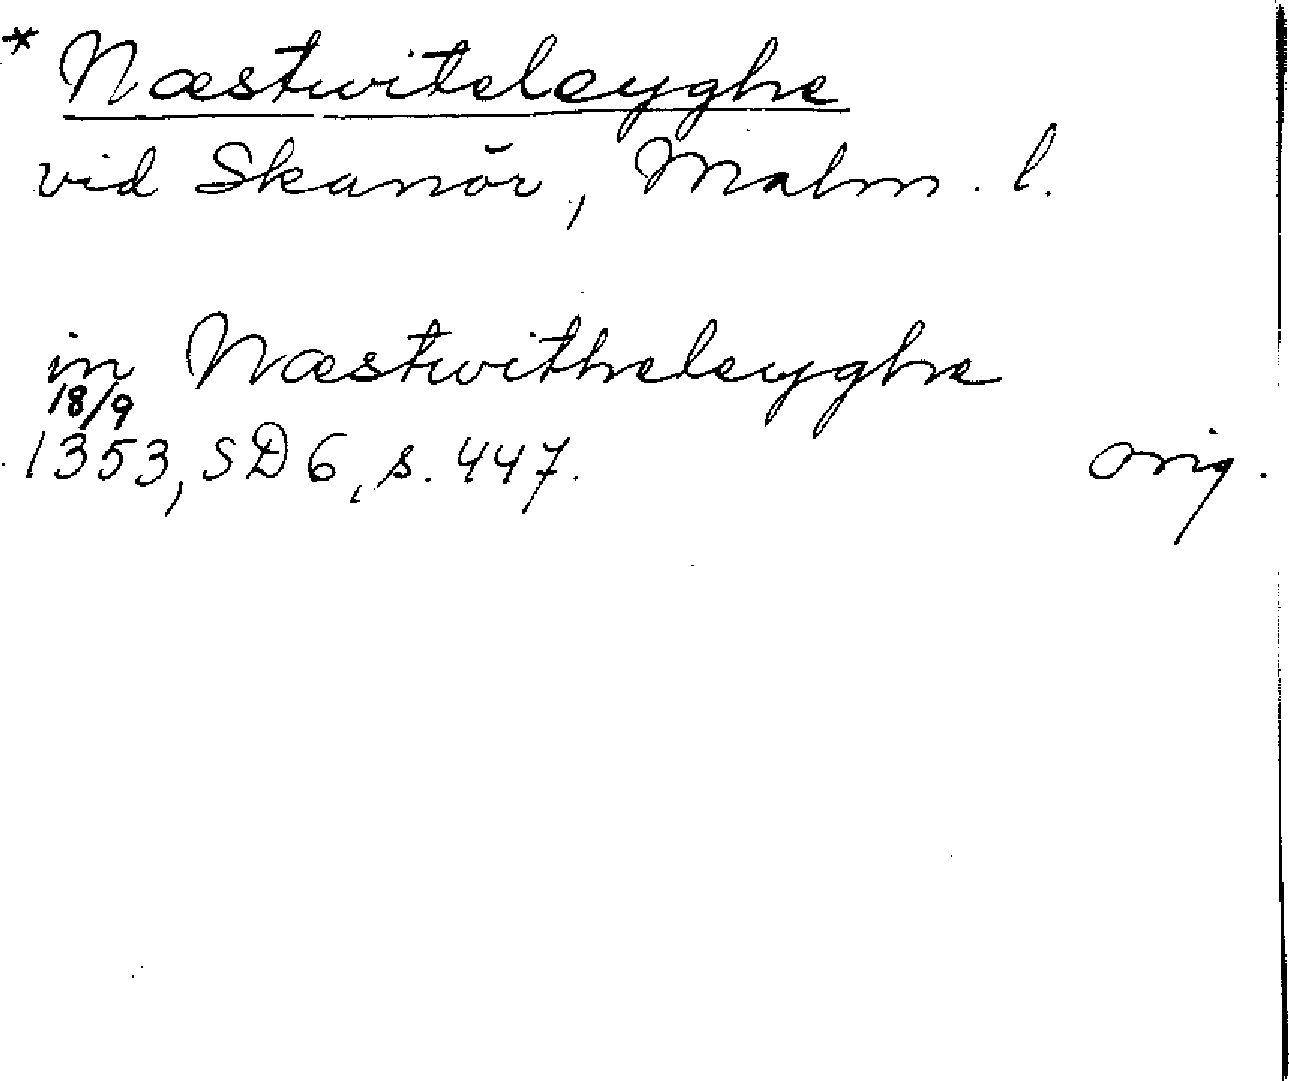 * Næstwiteleyghe
vid Skanör, Malm. l.
in Næstwitheleyghe
18/9
1353, SD 6, s. 447. orig.